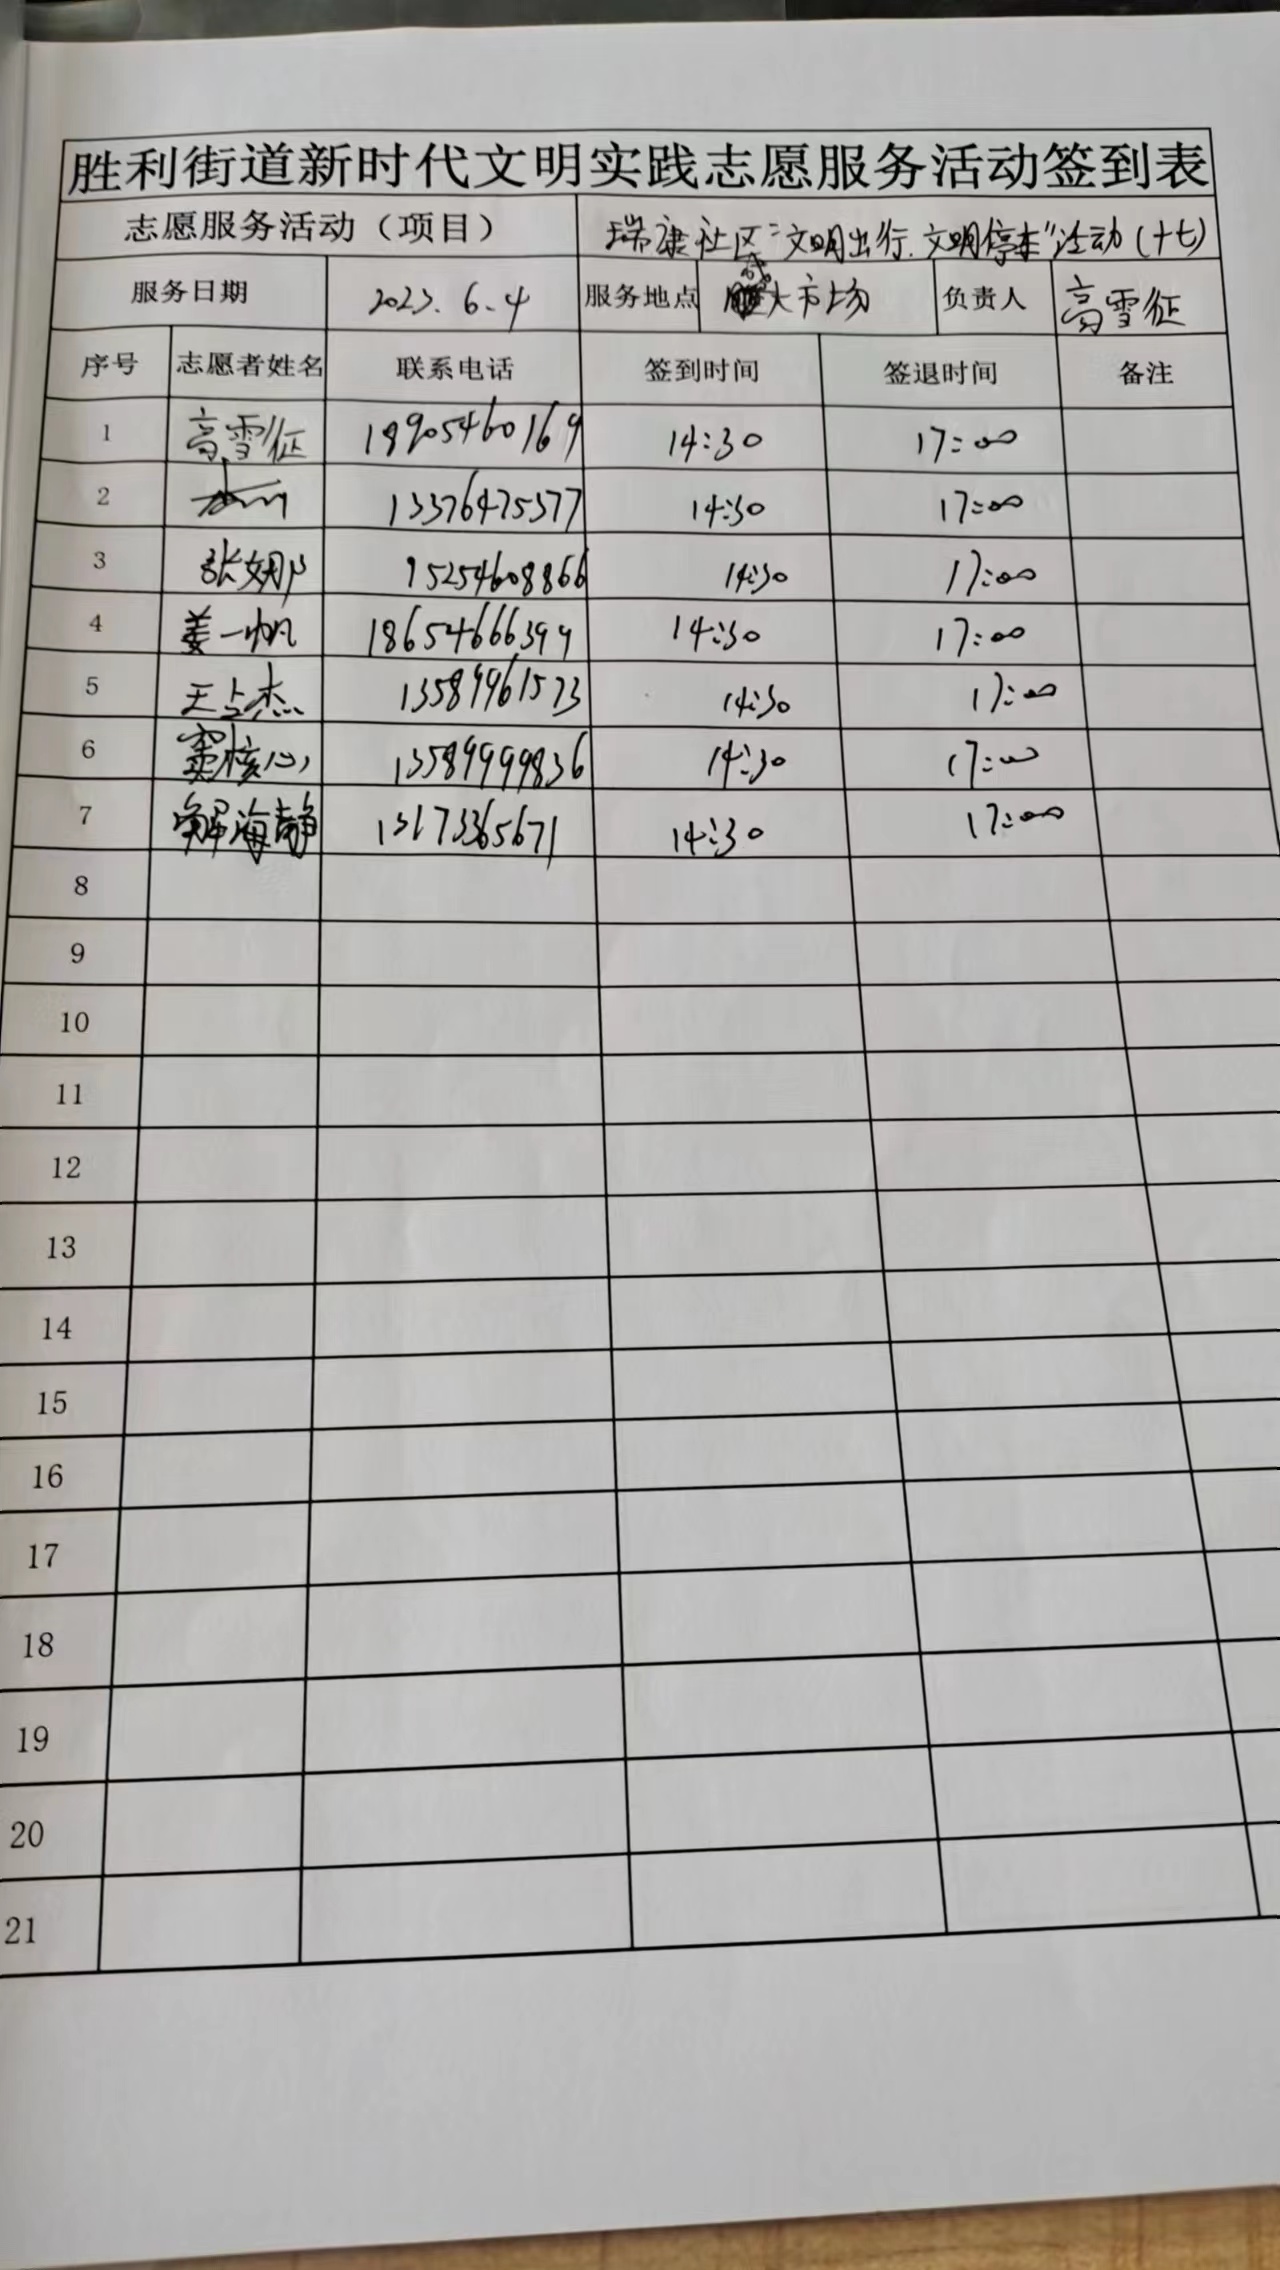 胜利街道新时代文明实践志愿服务活动签到表
志愿服务活动（项目） 瑞康社区“文明出行.文明停车”活动(十七)
服务日期 2023.6.4 服务地点 大市场 负责人 高雪征
序号 志愿者姓名 联系电话 签到时间 签退时间 备注
1 高雪征 19905460169 14:30 17:00
2 13376475377 14:30 17:00
3 张娜 15254608866 14:30 17:00
4 姜一帆 18654666399 14:30 17:00
5 王占杰 13589961573 14:30 17:00
6 窦核心 13589999836 14:30 17:00
7 解海静 13173365671 14:30 17:00
8
9
10
11
12
13
14
15
16
17
18
19
20
21